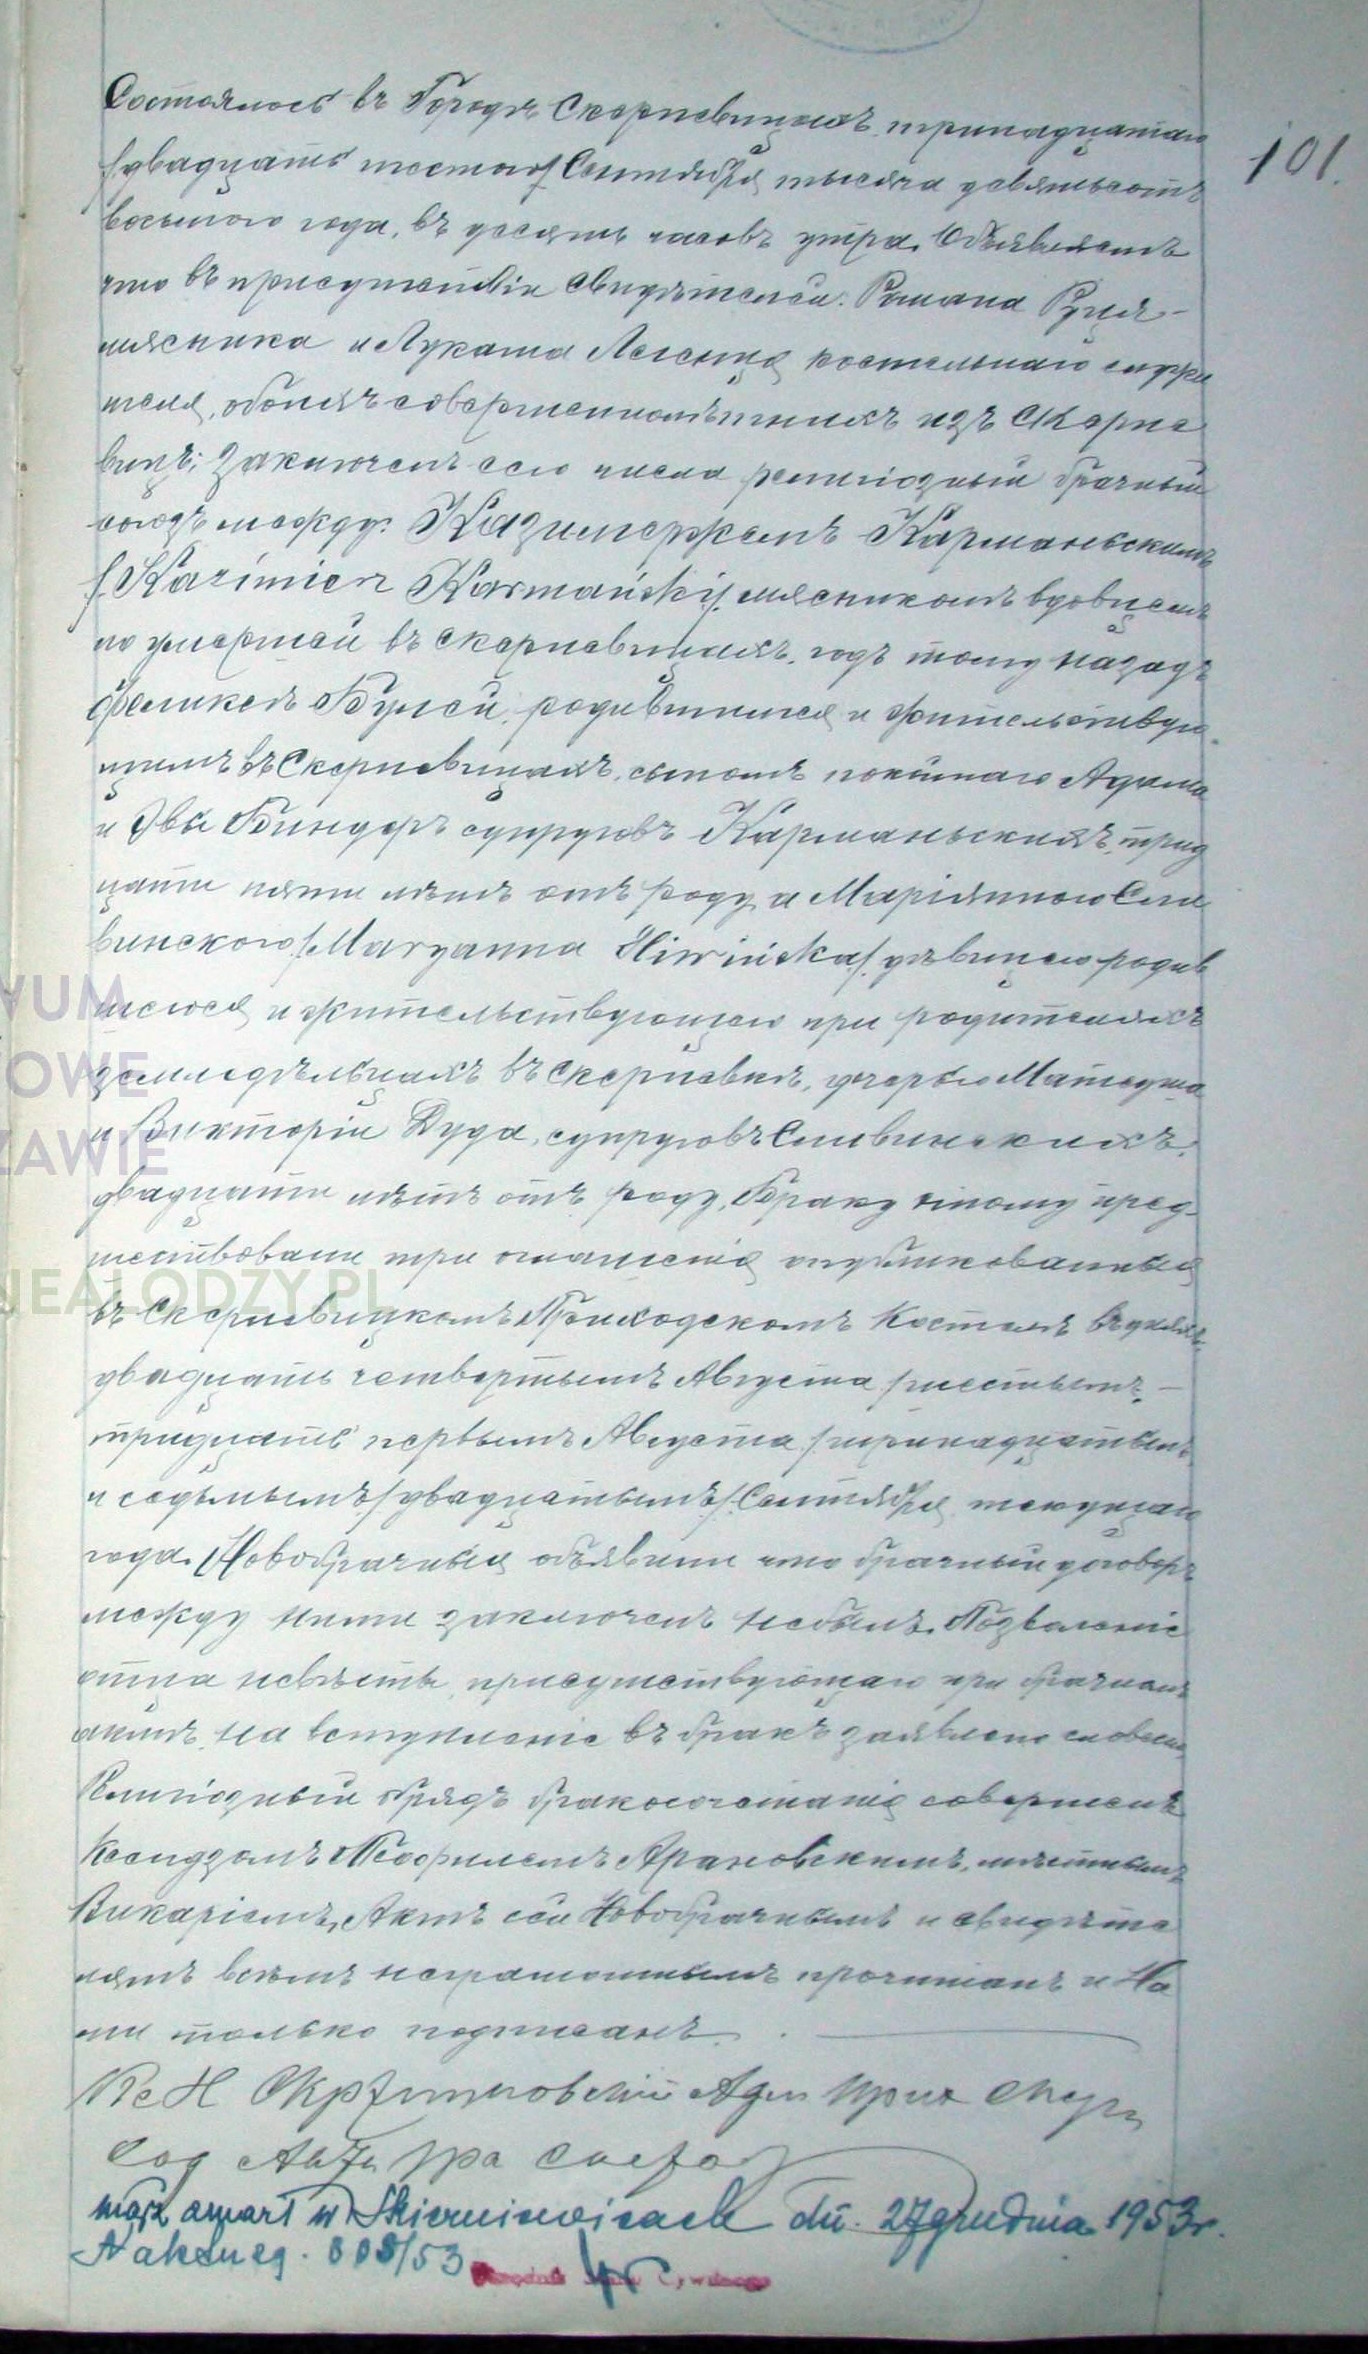 101.
Состоялось въ Городѣ Скерневицахъ тринадцатаго
/двадцать шестого/ Сентября тысяча девятьсотъ
восьмого года, въ десять часовъ утра. Объявляемъ
что въ присутствіи свидѣтелей: Романа
мясника и Лукаша костельнаго служи
теля, обоихъ совершеннолѣтнихъ изъ Скерне
вицъ; заключенъ сего числа религіозный брачный
союзъ между: Казимержемъ Карманьскимъ
/Kazimierz Karmański/ мясникомъ вдовцемъ
по умершей въ Скерневицахъ, годъ тому назадъ
родившимся и жительствую
щимъ въ Скерневицахъ, сыномъ покойнаго Адама
и Эвы Биндеръ супруговъ Карманьскихъ, трид
цати пяти лѣтъ отъ роду и Маріянною Сли
винскою /Maryanna Sliwińska/ дѣвицею родив
шеюся и жительствующею при родителяхъ
земледѣльцахъ въ Скерневкѣ, дочерью Матеуша
и Викторіи Дуда, супруговъ Сливинскихъ,
двадцати лѣтъ отъ роду. Браку этому пред-
шествовали три оглашенія опубликованныя
въ Скерневицкомъ Приходскомъ Костелѣ въ дняхъ:
двадцать четвертымъ Августа /шестымъ/-
тридцать первымъ Августа /тринадцатымъ/
и седьмымъ /двадцатымъ/ Сентября текущаго
года. Новобрачныя объявили что брачный договоръ
между ними заключенъ небылъ. Позволеніе
отца невѣсты, присутствующаго при брачномъ
актѣ, на вступленіе въ бракъ заявлено словесно
Религіозный обрядъ бракосочетанія совершенъ
Ксендзомъ Теофилемъ мѣстнымъ
Викаріемъ. Актъ сей Новобрачнымъ и свидѣте
лямъ всѣмъ неграмотнымъ прочитанъ и На
ми только подписанъ.
Кс Н Адм Прих Скер
Сод Акты Гра Сост
mąż zmarł w Skierniewicach dn. 27 grudnia 1953 r.
Nr aktu eg. 308/53
Urzędnik Stanu Cywilnego